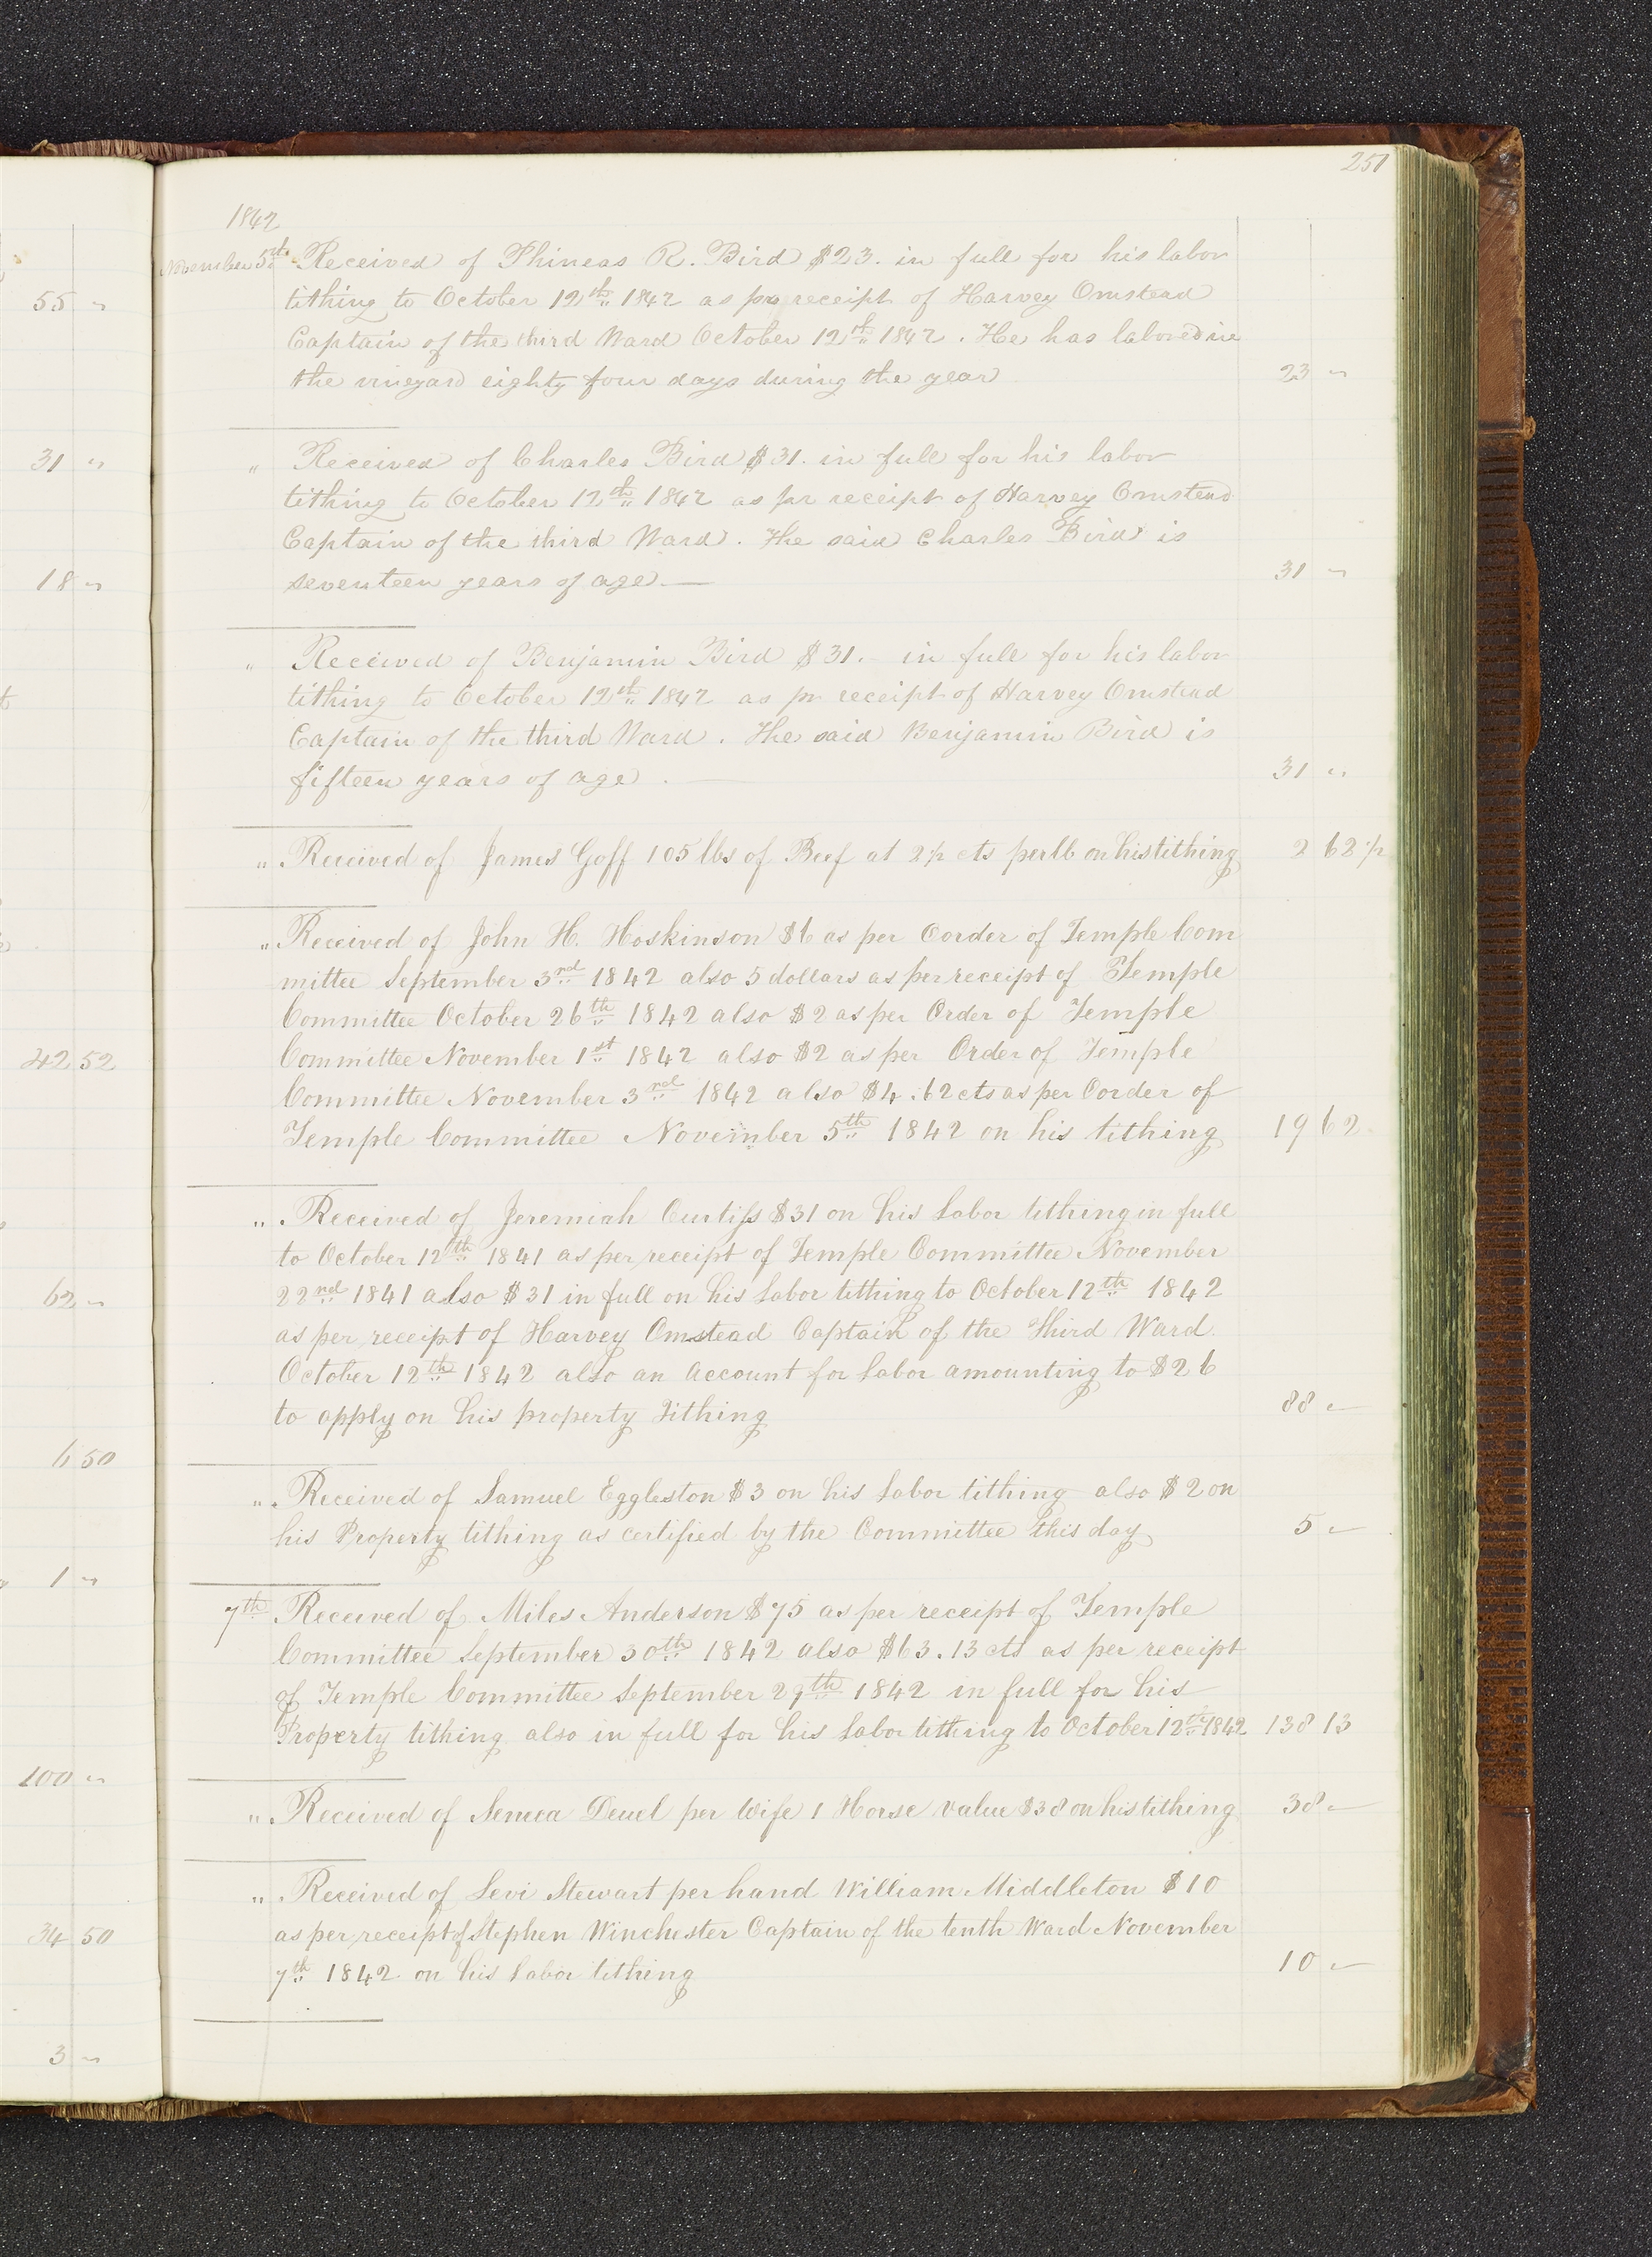 251
1842
November 5th Received of Phineas R. Bird $23. in full for his labor
tithing to October 12th 1842 as pr receipt of Harvey Omstead
Captain of the third Ward October 12th 1842. He has labored in
the vineyard eighty four days during the year 23 "
" Received of Charles Bird $31. in full for his labor
tithing to October 12th 1842 as pr receipt of Harvey Omstead
Captain of the third Ward. The said Charles Bird is
seventeen years of age.— 31 "
" Received of Benjamin Bird $31.— in full for his labor
tithing to October 12th 1842 as pr receipt of Harvey Omstead
Captain of the third Ward. The said Benjamin Bird is
fifteen years of age. — 31 "
" Received of James Goff 105 lbs of Beef at 2½ cts per lb on his tithing 2 62½
" Received of John H. Hoskinson $6 as per Oorder of Temple Com
mittee September 3rd 1842 also 5 dollars as per receipt of Temple
Committee October 26th 1842 also $2 as per Order of Temple
Committee November 1st 1842 also $2 as per Order of Temple
Committee November 3rd 1842 also $4.62 cts as per Oorder of
Temple Committee November 5th 1842 on his tithing 19 62
" Received of Jeremiah Curtiss $31 on his Labor tithing in full
to October 12th 1841 as per receipt of Temple Committee November
22nd 1841 also $31 in full on his Labor tithing to October 12th 1842
as per receipt of Harvey Omstead Captain of the Third Ward.
October 12th 1842 also an account for Labor amounting to $26
to apply on his property Tithing 88 "
" Received of Samuel Eggleston $3 on his Labor tithing also $2 on
his Property tithing as certified by the Committee this day 5 "
7th Received of Miles Anderson $75 as per receipt of Temple
Committee September 30th 1842 also $63.13 cts as per receipt
of Temple Committee September 29th 1842 in full for his
Property tithing also in full for his Labor tithing to October 12th 1842 138 13
" Received of Seneca Deuel per Wife 1 Horse value $38 on his tithing 38 "
" Received of Levi Stewart per hand William Middleton $10
as per receipt of Stephen Winchester Captain of the tenth Ward November
7th 1842. on his Labor tithing 10 "
55 "
31 "
18 "
42 52
62 "
6 50
1 "
100 "
34 50
3 "